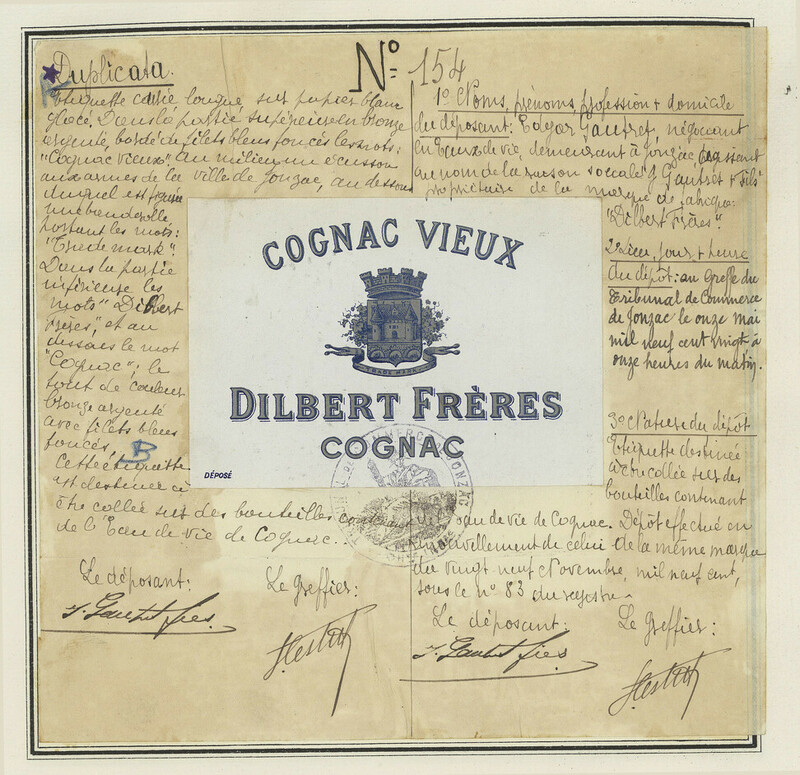 Duplicata.
No 154
Etiquette carrée longue, sur papier blanc
glacé. Dans la partie supérieure en bronze
argenté, bordé de filets bleus foncés les mots:
"Cognac Vieux". Au milieu un écusson
aux armes de la ville de Jonzac, au dessous
duquel est figurée
une banderolle
portant les mots:
"Trade mark".
Dans la partie
inférieure les
mots "Dilbert
Frères", et au
dessous le mot
"Cognac"; le
tout de couleur
bronze argenté
avec filets bleus
foncés.
B
Cette étiquette
est destinée à
être collée sur des bouteilles
de l'Eau de vie de Cognac.
Le déposant:
Le Greffier:
J. Gautret fils
1o Noms, prénoms, profession & domicile
du déposant: Edgar Gautret, négociant
en Eaux de vie, demeurant à Jonzac, agissant
au nom de la raison sociale J. Gautret & Fils
propriétaire de la marque de fabrique:
"Dilbert Frères".
2o Lieu, jour & heure
du dépôt: au Greffe du
Tribunal de Commerce
de Jonzac le onze mai
mil neuf cent vingt à
onze heures du matin.
3o Nature du dépôt
Etiquette destinée
à être collée sur des
bouteilles contenant
eau de vie de Cognac. Dépôt effectué en
renouvellement de celui de la même marque
du vingt neuf Novembre, mil neuf cent,
sous le no 83 du registre
Le déposant:
Le Greffier:
J. Gautret fils
COGNAC VIEUX
TRADE MARK
DILBERT FRÈRES
COGNAC
DÉPOSÉ